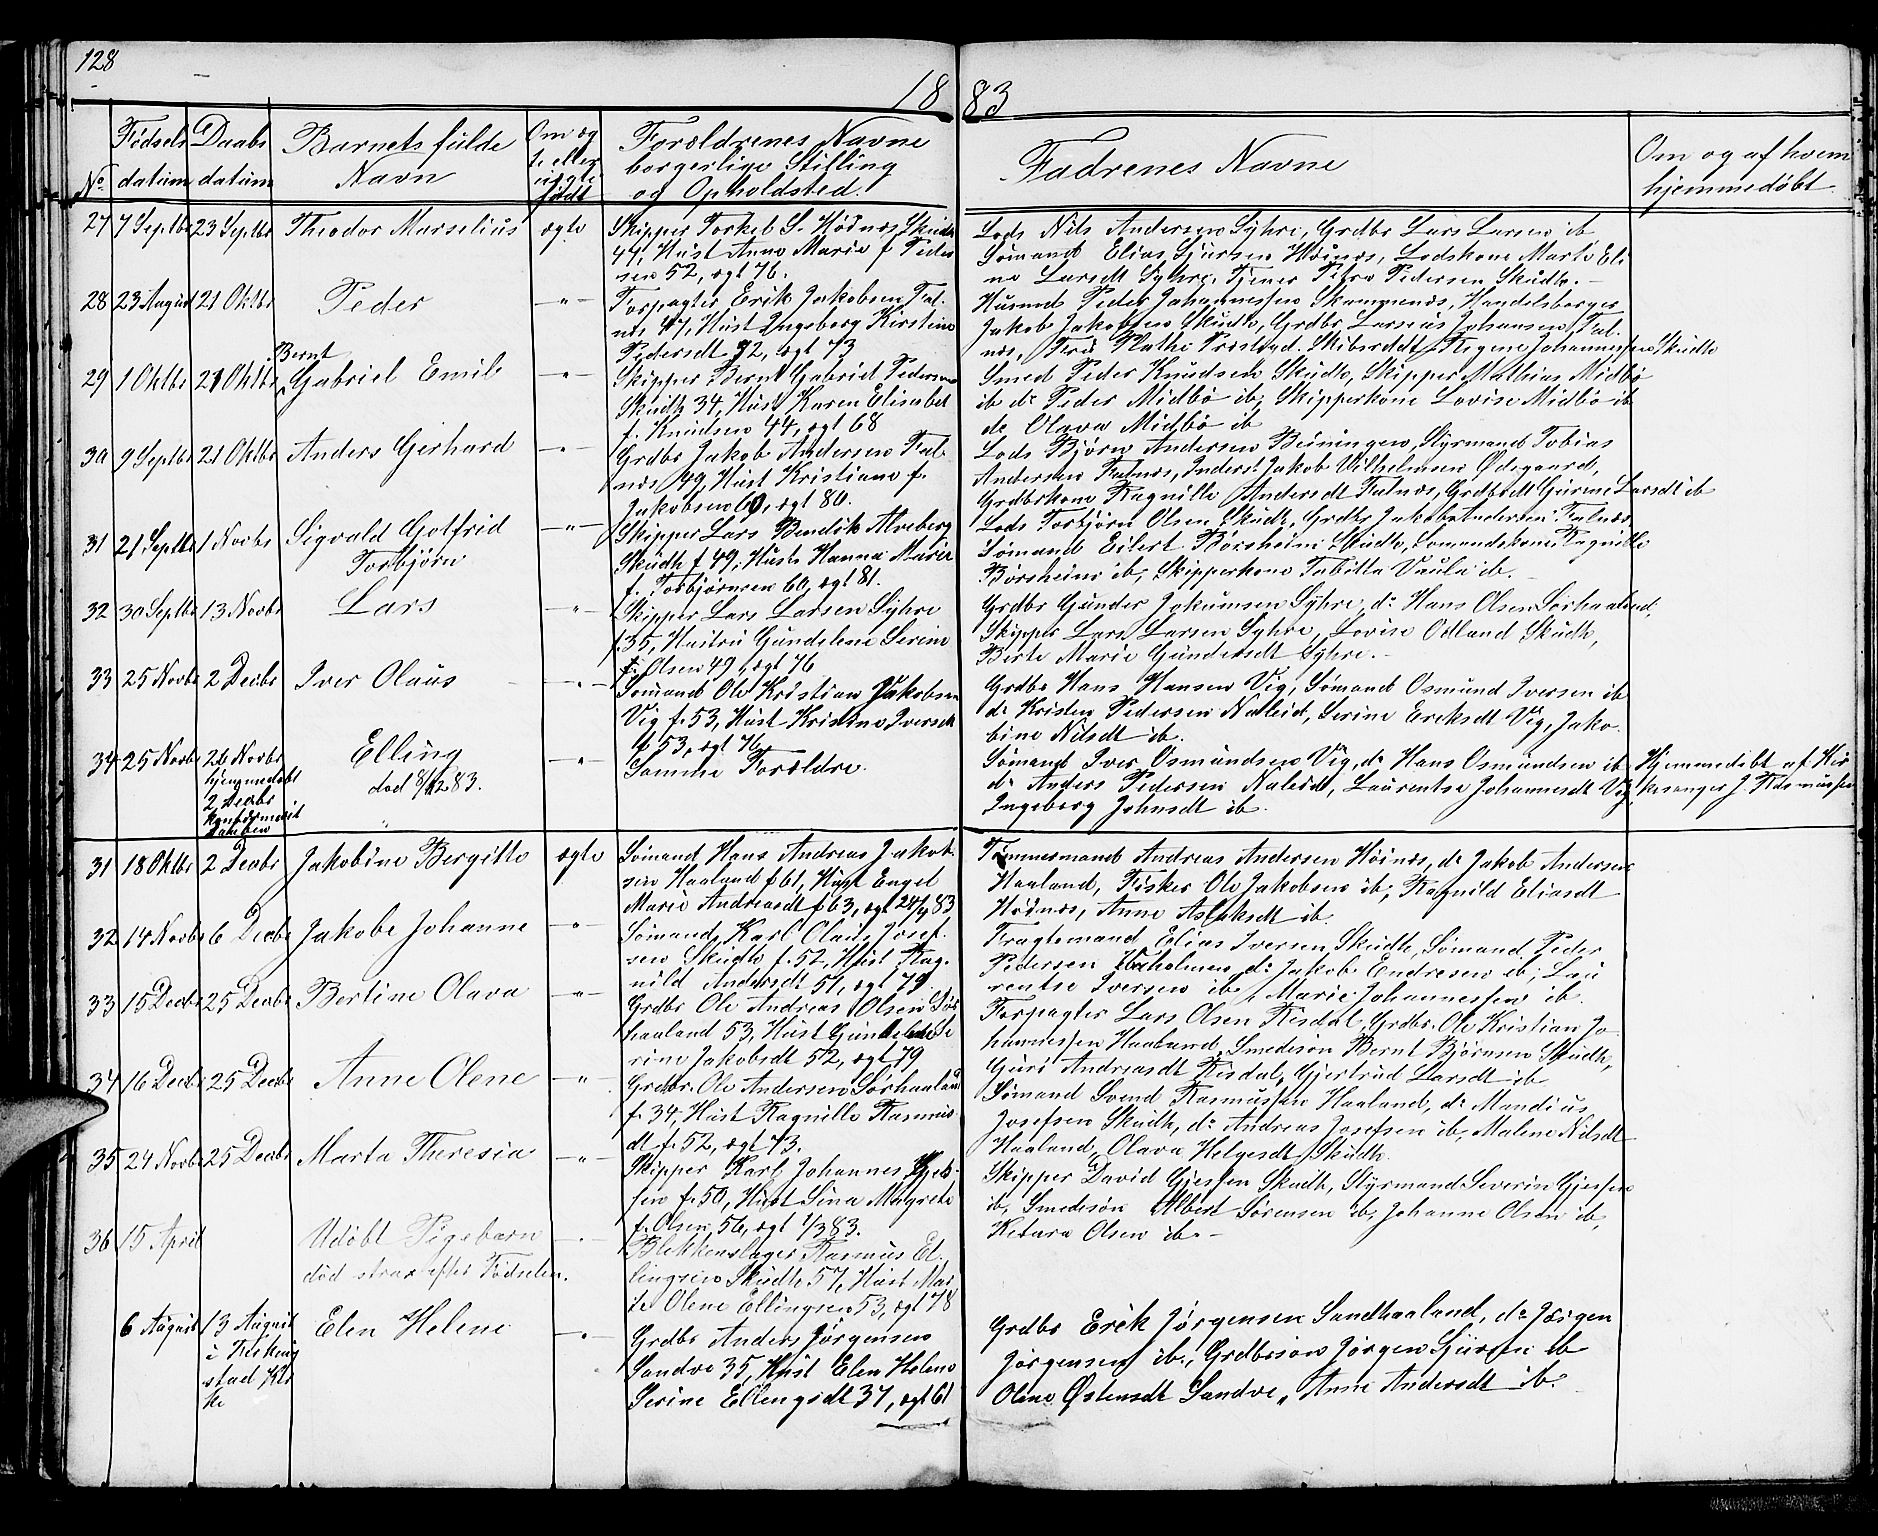 128
18 83
No
Fødsels datum
Daabs datum
Barnets fulde Navn
Om æg te eller uægte født
Forældrenes Navne borgerlige Stilling og Opholdsted.
Fadrenes Navne
Om og af hvem hjemmedøbt
27 7 Septbr 23 Septbr Theodor Marselius ægte
Skipper Torkel S. Hødnæs Skudh
47, Hust Anne Marie f Peder
sen 52, ægt 76.
Lods Nils Andersen Syhre, Grdbr Lars Larsen ib
Sømand Elias Sjursen Høinæs, Lodskone Marte Eli
ne Larsdt Syhre, Tjener Petra Pedersen Skudh. -
28 23 August 21 Oktbr Peder -"-
Forpagter Erik Jakobsen Fal-
næs 47, Hust Ingeborg Kirstine
Pedersdt 72, ægt 73
Husmd Peder Johannessen Skamnæs, Handelsborger
Jakob Jakobsen Skudh, Grdbr Larsius Johansen Fal-
næs, Kathe Regine Johannessen Skudh
29 1 Oktbr 21 Oktbr Bernt Gabriel Emil -"-
Skipper Bernt Gabriel Pedersen
Skudh 34, Hust Karen Elisabet
f. Knudsen 44, ægt 68
Smed Peder Knudsen Skudh, Skipper Mathias Midbø
ib do Peder Midbø ib, Skipperkone Lovise Midbø ib
do Olava Midbø ib
30 9 Septbr 21 Oktbr Anders Gerhard -"-
Grdbr Jakob Andersen Fal-
næs 49, Hust Kristiane f.
Jakobsen 60, ægt 80.
Lods Bjørn Andersen Beiningen, Styrmand Tobias
Andersen Falnæs, Inderst Jakob Vilhelmsen Ødegaard,
Grdbrkone Ragnille Andersdt Falnæs, Grdbrdt Gurine Larsdt ib
31 21 Septbr 1 Novbr Sigvald Gotfrid Torbjørn -"-
Skipper Lars Bendik Alveberg
Skudh f 49, Hust Hanna Marie
f. Torbjørnsen 60, ægt 81.
Lods Torbjørn Olsen Skudh, Grdbr Jakob Andersen Falnæs
Sømand Eilert Børsheim Skudh, Sømandskone Ragnille
Børsheim ib, Skipperkone Tabitta Vaula ib. -
32 30 Septbr 13 Novbr Lars -"-
Skipper Lars Larsen Syhre
f 35, Hustru Gundelene Serine
f. Olsen 49, ægt 76
Grdbr Gunder Jokumsen Syhre, do Hans Olsen Sørhaaland,
Skipper Lars Larsen Syhre, Lovise Odland Skudh,
Berte Marie Gundersdt Syhre. -
33 25 Novbr 2 Decbr Iver Olaus -"-
Sømand Ole Kristian Jakobsen
Vig f. 53, Hust Kristine Iversdt
f 53, ægt 76
Grdbr Hans Hansen Vig, Sømand Osmund Iversen ib
do Kristen Pedersen Naleid, Serine Eriksdt Vig, Jako-
bine Nilsdt ib.
34 25 Novbr 26 Novbr hjemmedøbt 2 Decbr konfirmeret Daaben Elling død 8/12 83. -"-
Samme Forældre.
Sømand Iver Osmundsen Vig, do Hans Osmundsen ib
do Anders Pedersen Naleid, Laurentse Johannesdt Vig,
Ingeborg Johnsdt ib.
Hjemmedøbt af Kir
kesanger J. Rasmussen
31 18 Oktbr 2 Decbr Jakobine Bergitte ægte
Sømand Hans Andreas Jakob-
sen Haaland f 61, Hust Engel
Marie Andreasdt f 63, ægt 24/4 83
Tømmermand Andreas Andersen Høinæs, do Jakob Andersen
Haaland, Fisker Ole Jakobsen ib, Ragnild Eliasdt
Hødnæs, Anne Aslaksdt ib.
32 14 Novbr 6 Decbr Jakobe Johanne -"-
Sømand Karl Olaus Josef-
sen Skudh f. 52, Hust Rag-
nild Andersdt 51, ægt 79.
Fragtemand Elias Iversen Skudh, Sømand Peder
Pedersen, do Jakob Endresen ib, Lau
rentse Iversen ib, Marie Johannessen ib.
33 15 Decbr 25 Decbr Bertine Olava -"-
Grdbr Ole Andreas Olsen Sør
haaland 53, Hust Gundelene Se
rine Jakobsdt 52, ægt 79
Forpagter Lars Olsen Risdal, Grdbr. Ole Kristian Jo-
hannessen Haaland, Smedesøn Bernt Bjørnsen Skudh,
Guri Andreasdt Risdal, Gjertrud Larsdt ib
34 16 Decbr 25 Decbr Anne Olene -"-
Grdbr. Ole Andersen Sørhaaland
f. 34, Hust Ragnille Rasmus-
dt f. 52, ægt 73.
Sømand Svend Rasmussen Haaland, do Mandius
Josefsen Skudh, do Andreas Josefsen ib, Malene Nilsdt
Haaland, Olava Helgesdt Skudh.
35 24 Novbr 25 Decbr Marta Theresia -"-
Skipper Karl Johannes Gjes-
sen f. 50, Hust Sina Magrete
f. Olsen 56, ægt 1/3 83.
Skipper David Gjessen Skudh, Styrmand Severin Gjessen
ib, Smedesøn Albert Sørensen ib, Johanne Olsen ib,
Ketura Olsen ib. -
36 15 April Udøbt Pigebarn død strax efter Fødselen. -"-
Blikkenslager Rasmus El-
lingsen Skudh 57, Hust Mar
te Olene Ellingsen 53, ægt 78
6 August 13 August i Ferkingstad Kirke Elen Helene -"-
Grdbr Anders Jørgensen
Sandve 35, Hust Elen Helene
Serine Ellingsdt 37, ægt 61
Grdbr Erik Jørgensen Sandhaaland, do Jørgen
Jørgensen ib., Grdbrsøn Jørgen Sjursen ib
Olene Østensdt Sandve, Anne Andersdt ib.